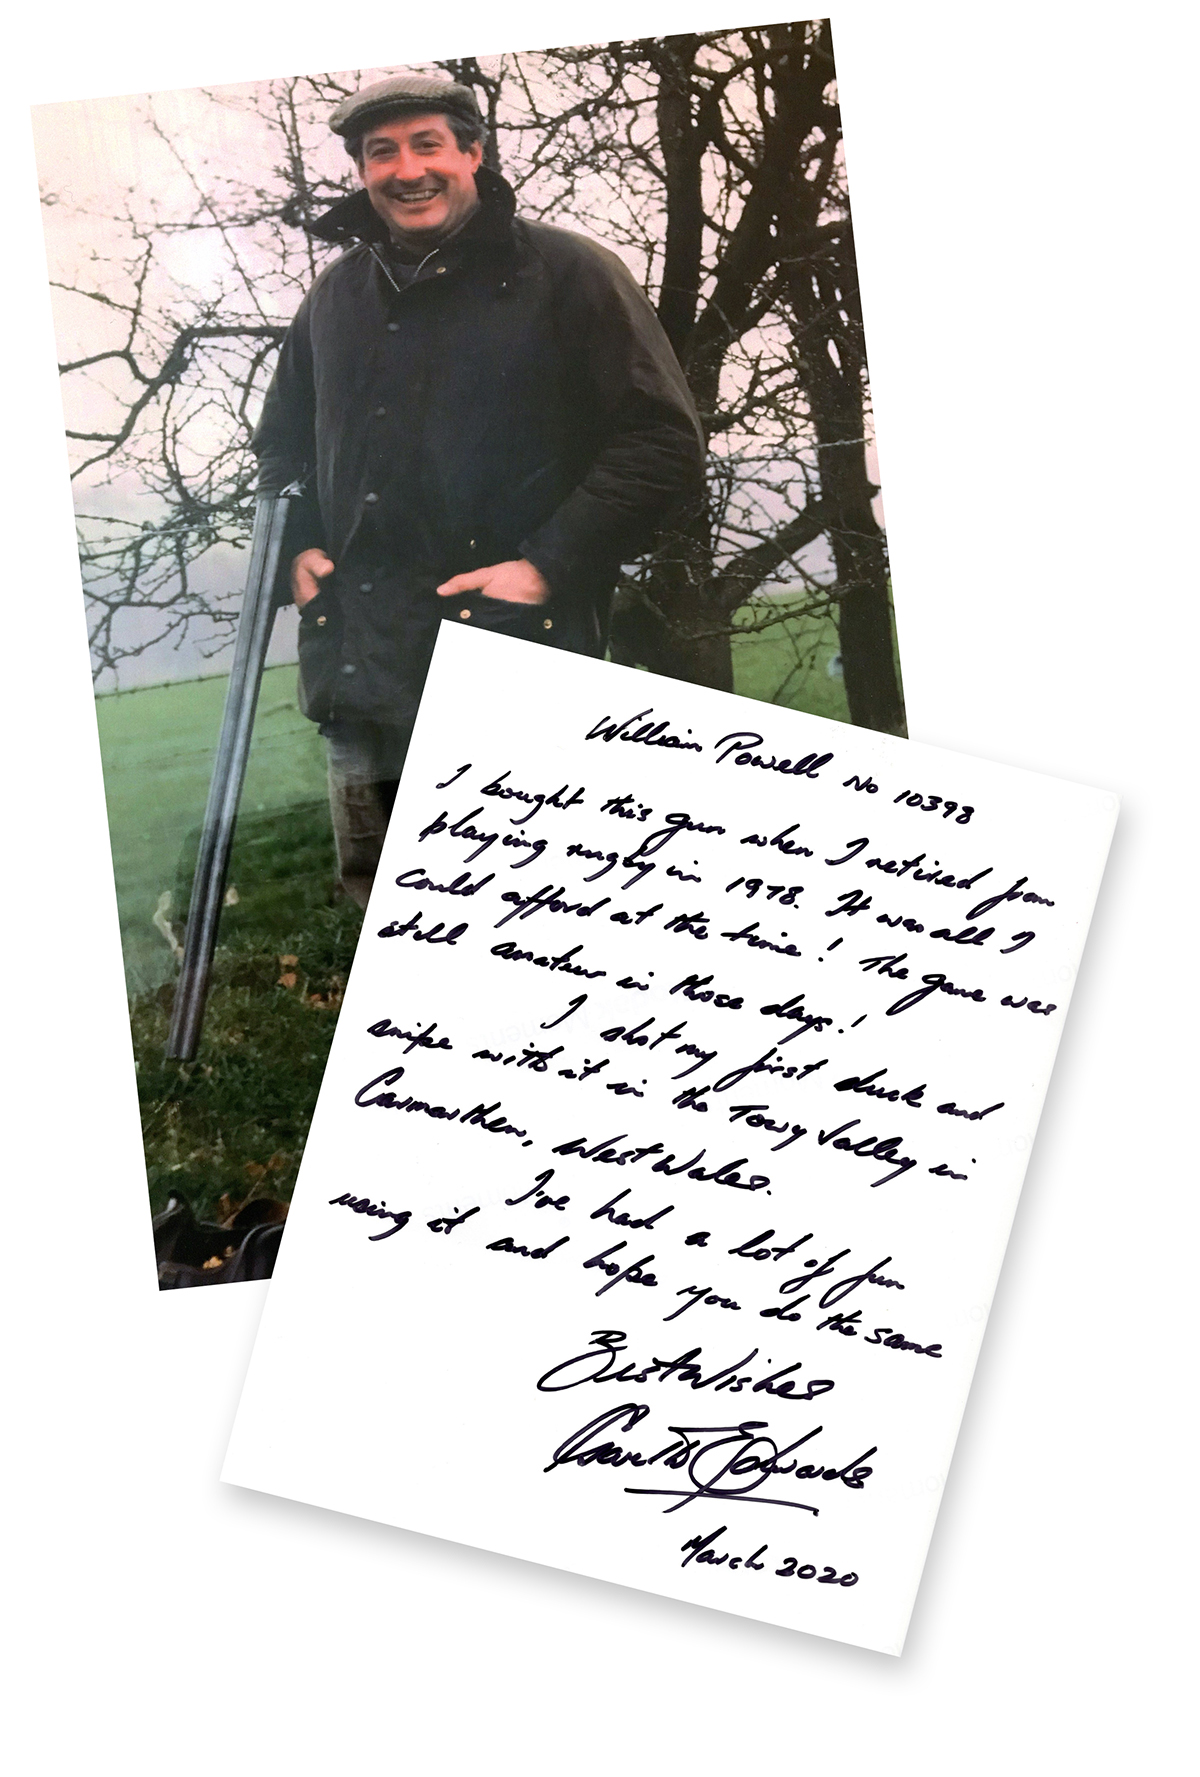 William Powell No 10398
I bought this gun when I retired from
playing rugby in 1978. It was all I
could afford at the time! The game was
still amateur in those days!
I shot my first duck and
snipe with it in the Towy Valley in
Carmarthen, West Wales.
I've had a lot of fun
using it and hope you do the same
Best Wishes
Gareth Edwards
March 2020